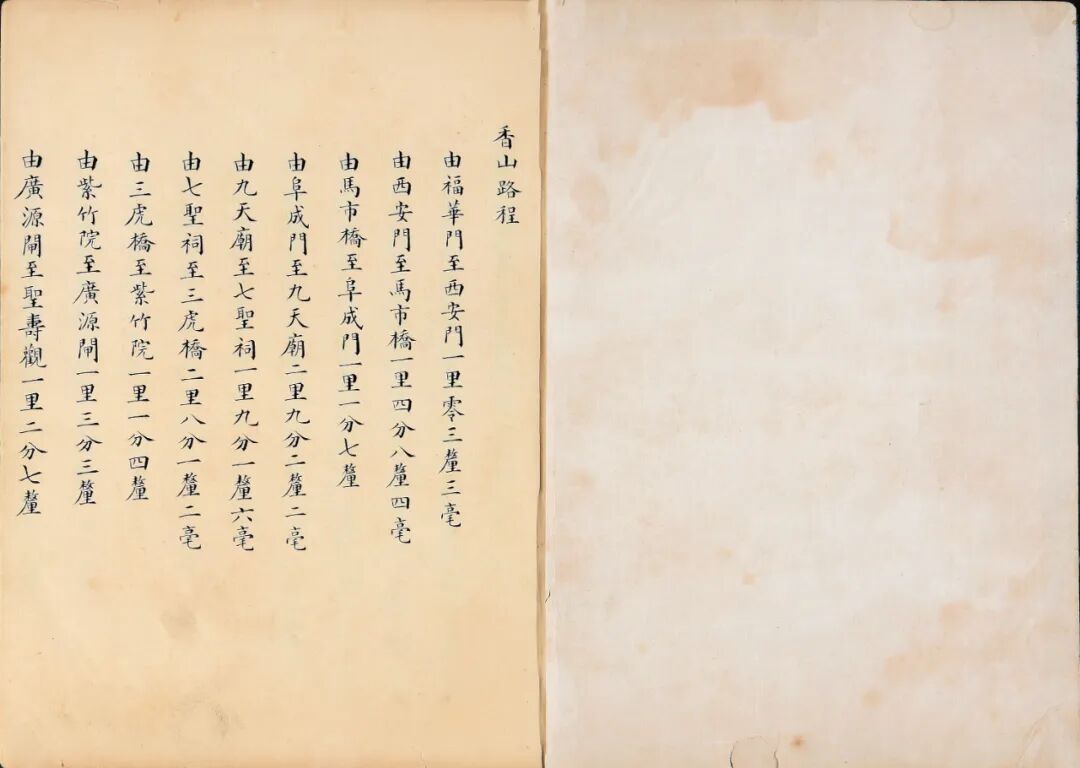 香山路程
由福華門至西安門一里零三釐三毫
由西安門至馬市橋一里四分八釐四毫
由馬市橋至阜成門一里一分七釐
由阜成門至九天廟二里九分二釐二毫
由九天廟至七聖祠一里九分一釐六毫
由七聖祠至三虎橋二里八分一釐二毫
由三虎橋至紫竹院一里一分四釐
由紫竹院至廣源閘一里三分三釐
由廣源閘至聖壽觀一里二分七釐